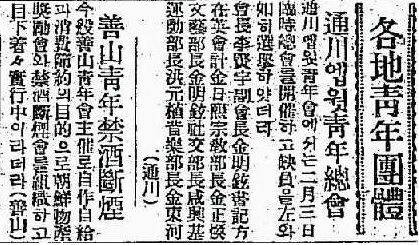 各地靑年團體
通川엡윗靑年總會
通川엡윗靑年會에서는二月三日
臨時總會를開催하고缺員을左와
如히選擧하얏더라
會長李贊宇副會長金明鉉書記方
在英會計金日熙宗敎部長金正煥
文藝部長金明鉉社交部長咸興基
運動部長洪元植音樂部長金東河
(通川)
善山靑年禁酒斷煙
今般善山靑年會主催로自作自給
과消費節約의目的으로朝鮮物產
奬勵會와禁酒斷煙會를組織하고
目下着々實行中이라더라(善山)